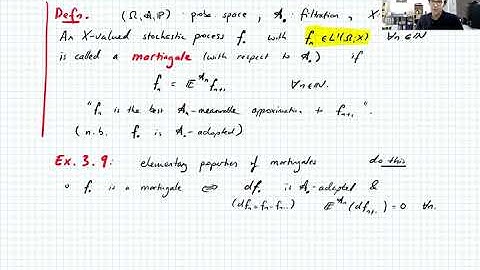 Defn. (Ω, 𝒜, ℙ) prob space, 𝒜. filtration, X
An X-valued stochastic process f. with fₙ ∈ L¹(Ω, X) ∀n∈ℕ
is called a martingale (with respect to 𝒜.) if
fₙ = 𝔼^𝒜ₙ fₙ₊₁ ∀n∈ℕ.
"fₙ is the best 𝒜ₙ-measurable approximation to fₙ₊₁".
(n.b. f. is 𝒜.-adapted)
Ex. 3.9: elementary properties of martingales do this
○ f. is a martingale ⇔ df. is 𝒜.-adapted &
(dfₙ = fₙ - fₙ₋₁) 𝔼^𝒜ₙ(dfₙ₊₁) = 0 ∀n.